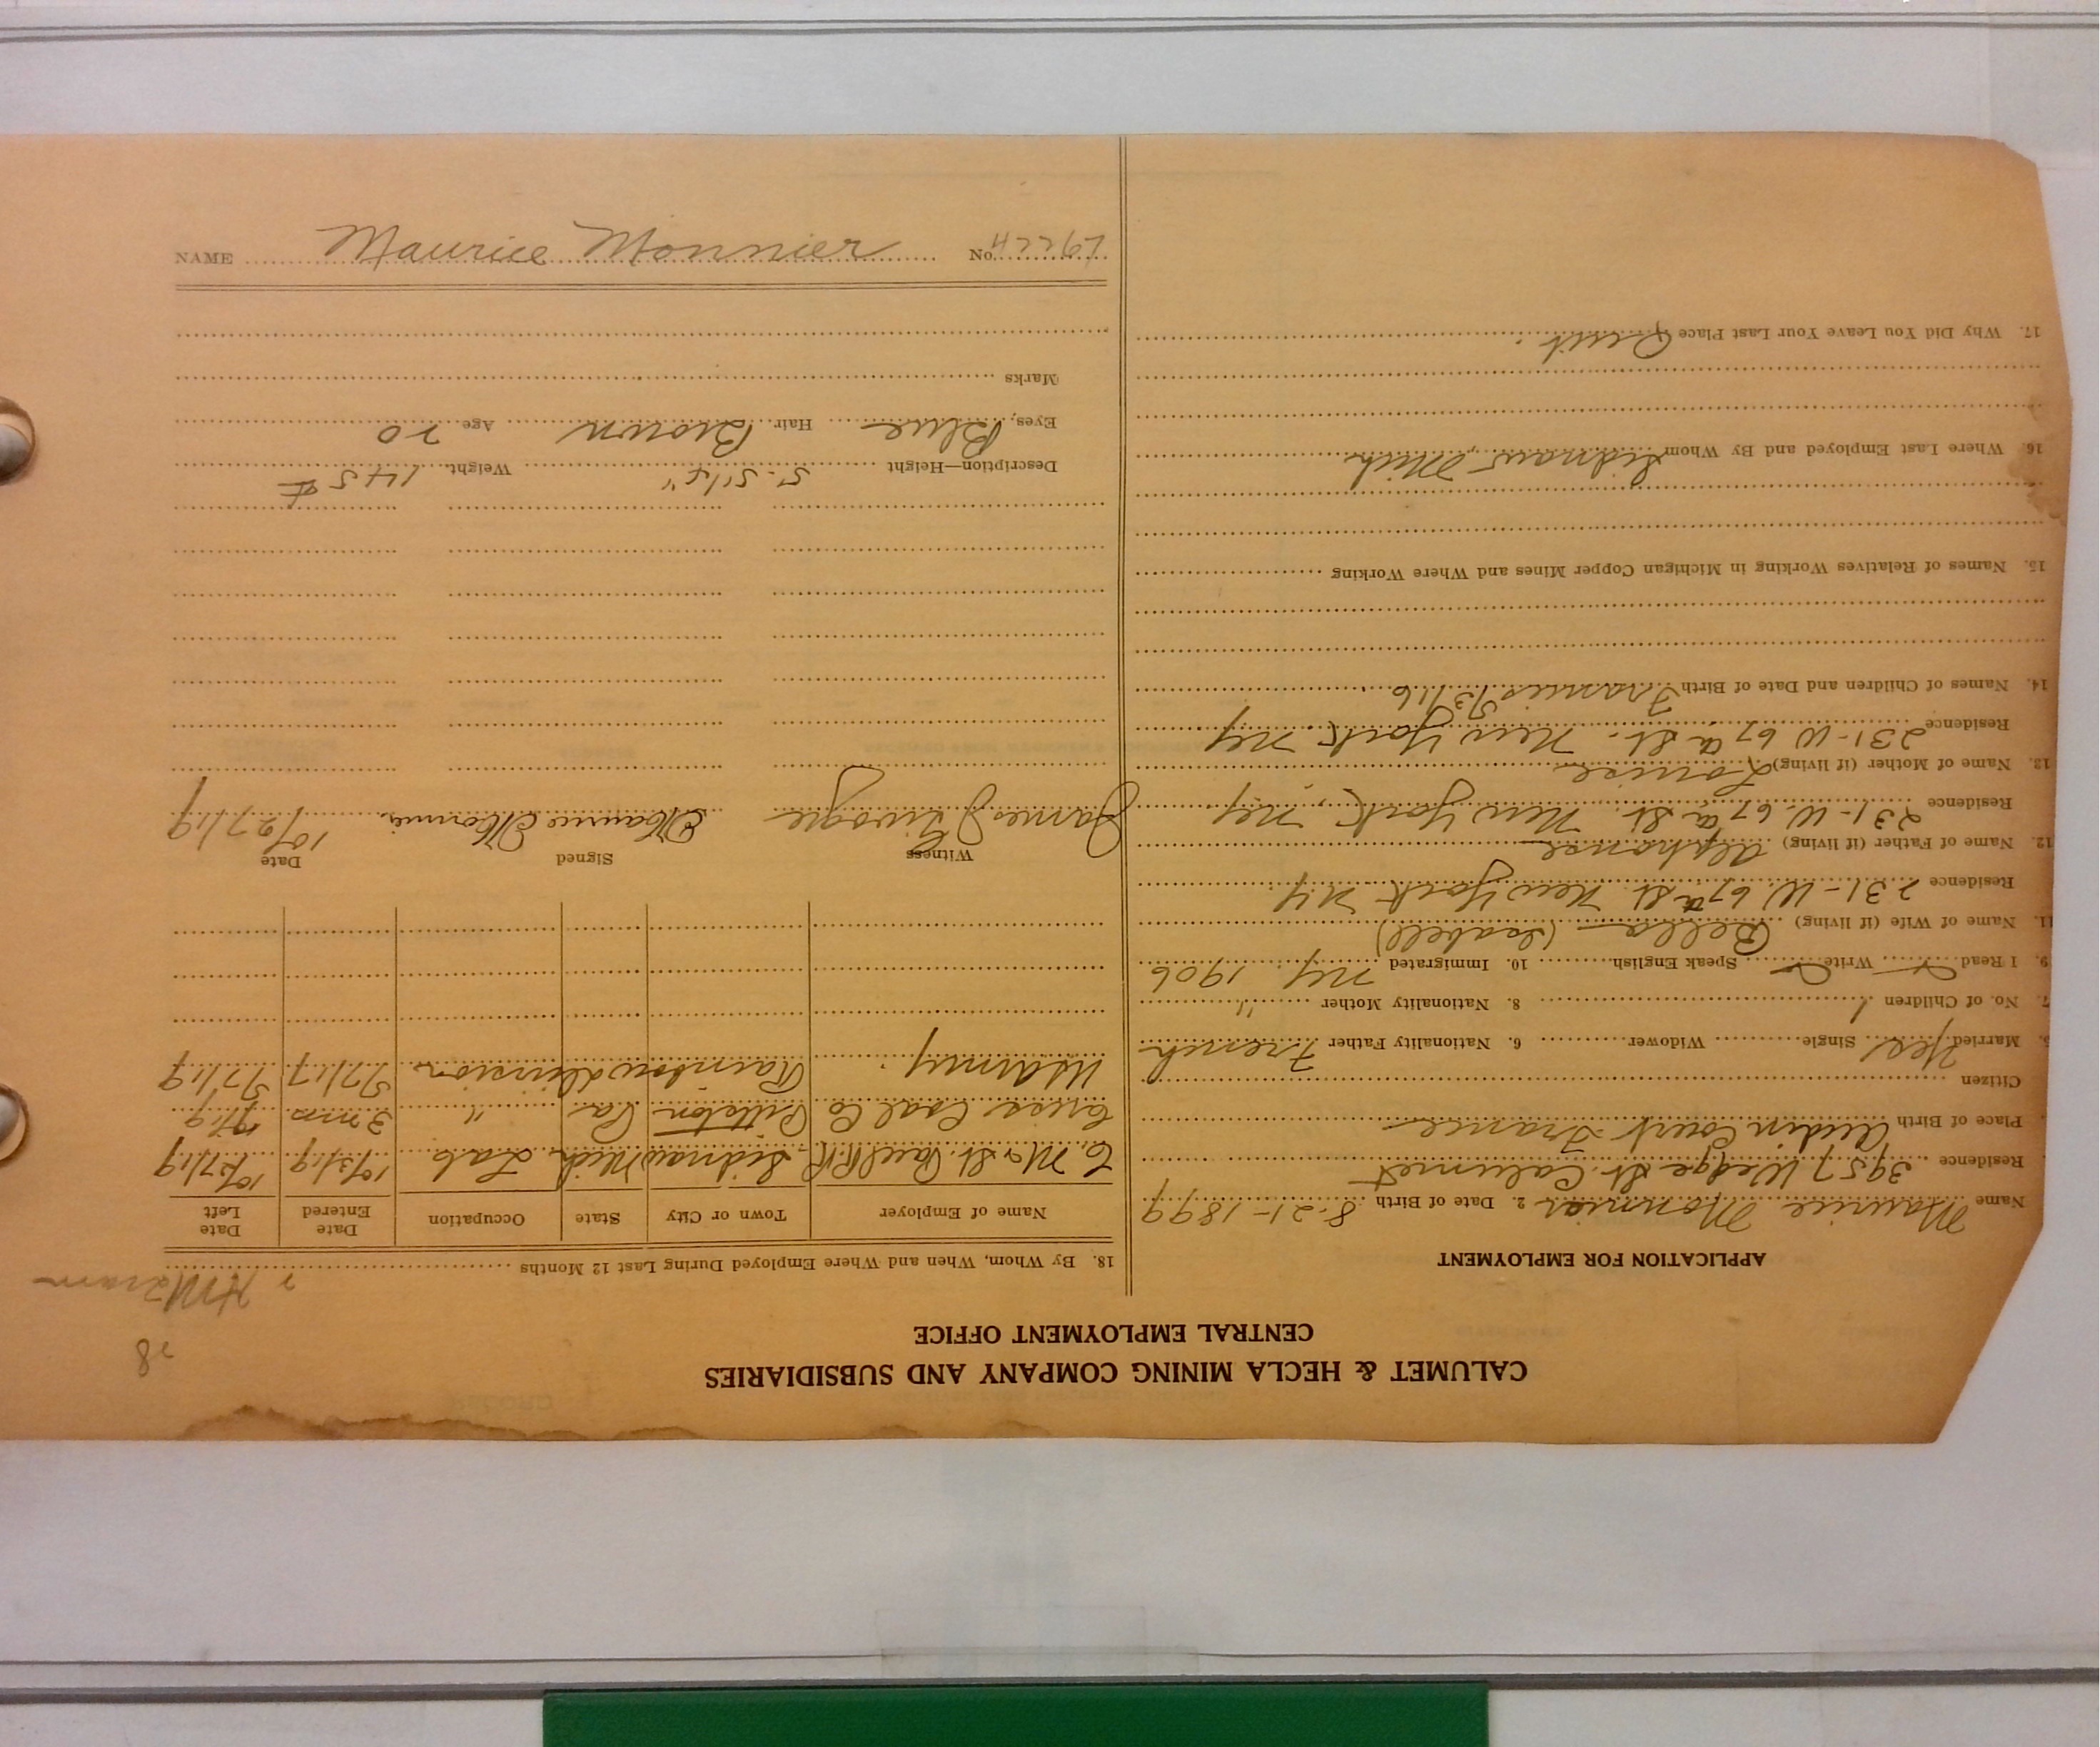 CALUMET & HECLA MINING COMPANY AND SUBSIDIARIES
CENTRAL EMPLOYMENT OFFICE
78
APPLICATION FOR EMPLOYMENT
Name Maurice Monnier 2. Date of Birth 8-21-1899
Residence 3957 Wedge St. Calumet
Place of Birth Audin Court France
Citizen
5. Married Yes Single Widower 6. Nationality Father French
7. No. of Children 1 8. Nationality Mother "
9. I Read Write Speak English 10. Immigrated NY 1906
11. Name of Wife (if living) Bella (Isabell)
Residence 231-W. 67th St. New York NY
12. Name of Father (if living) Alphonse
Residence 231-W. 67th St. New York, NY
13. Name of Mother (if living) Louise
Residence 231-W 67th St. New York NY
14. Names of Children and Date of Birth Francis
15. Names of Relatives Working in Michigan Copper Mines and Where Working
16. Where Last Employed and By Whom Sidnaw Mich
17. Why Did You Leave Your Last Place Quit.
18. By Whom, When and Where Employed During Last 12 Months
Name of Employer Town or City State Occupation Date Entered Date Left
C. M & St. Paul RR Sidnaw Mich Lab 10/3/19 10/27/19
Coal Co Pittston Pa " 3 mos 9/19
US Army Rainbow division 5/7/17 5/7/19
Witness Signed Date
James J Maurice Monnier 10/27/19
Description—Height 5'-5 1/4" Weight 145 #
Eyes, Blue Hair Brown Age 20
Marks
NAME Maurice Monnier No. 42267